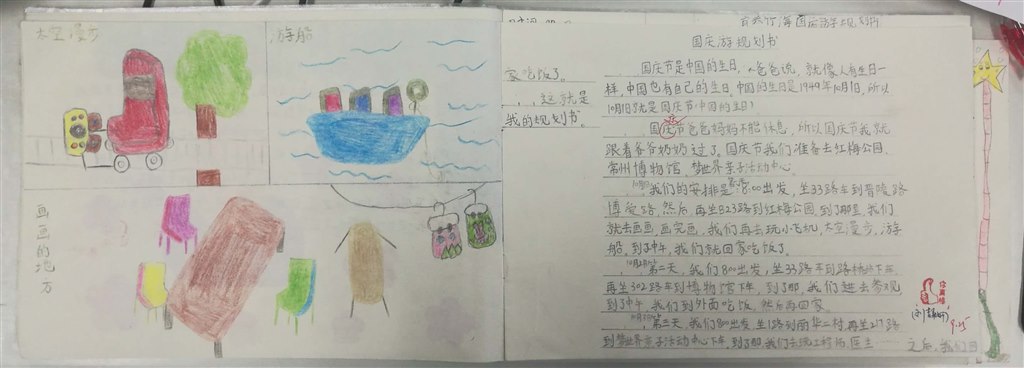 太空漫步
游船
画画的地方
国庆游规划书
国庆节是中国的生日,爸爸说,就像人有生日一
样,中国也有自己的生日。中国的生日是1949年10月1日,所以
10月1日就是国庆节(中国的生日)
国庆节爸爸妈妈不能休息,所以国庆节我就
跟着爷爷奶奶过了。国庆节我们准备去红梅公园、
常州博物馆、梦世界亲子活动中心
我们的安排是:8:00出发,坐33路车到晋陵路
博爱路,然后再坐B23路到红梅公园,到了那里,我们
就去画画,画完画,我们再去玩小飞机,太空漫步,游
船,到了中午,我们就回家吃饭了。
第二天,我们8:00出发,坐33路车到路下车,
再坐302路车到博物馆下车,到了那,我们进去参观
到了中午,我们到外面吃饭,然后再回家。
第三天,我们8:00出发,坐1路到丽华二村,再坐217路
到梦世界亲子活动中心下车,到了那,我们去玩工程师,医生
之后,我们回
家吃饭了。
这就是
我的规划书。
你真棒
9.25